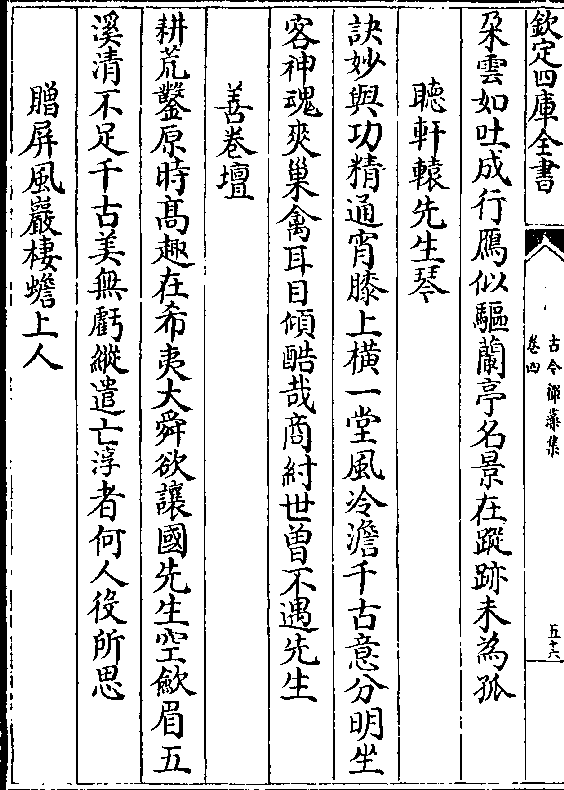 欽定四庫全書
古今禪藻集
卷四
五十六
朶雲如吐成行鴈似驅蘭亭名景在蹤跡未為孤
聽軒轅先生琴
訣妙與功精通宵膝上橫一堂風冷澹千古意分明坐
客神魂爽巢禽耳目傾酷哉商紂世曾不遇先生
善卷壇
耕荒鑿原時髙趣在希夷大舜欲讓國先生空歛眉五
溪清不足千古美無虧縱遣亡淳者何人役所思
贈屏風巖棲蟾上人